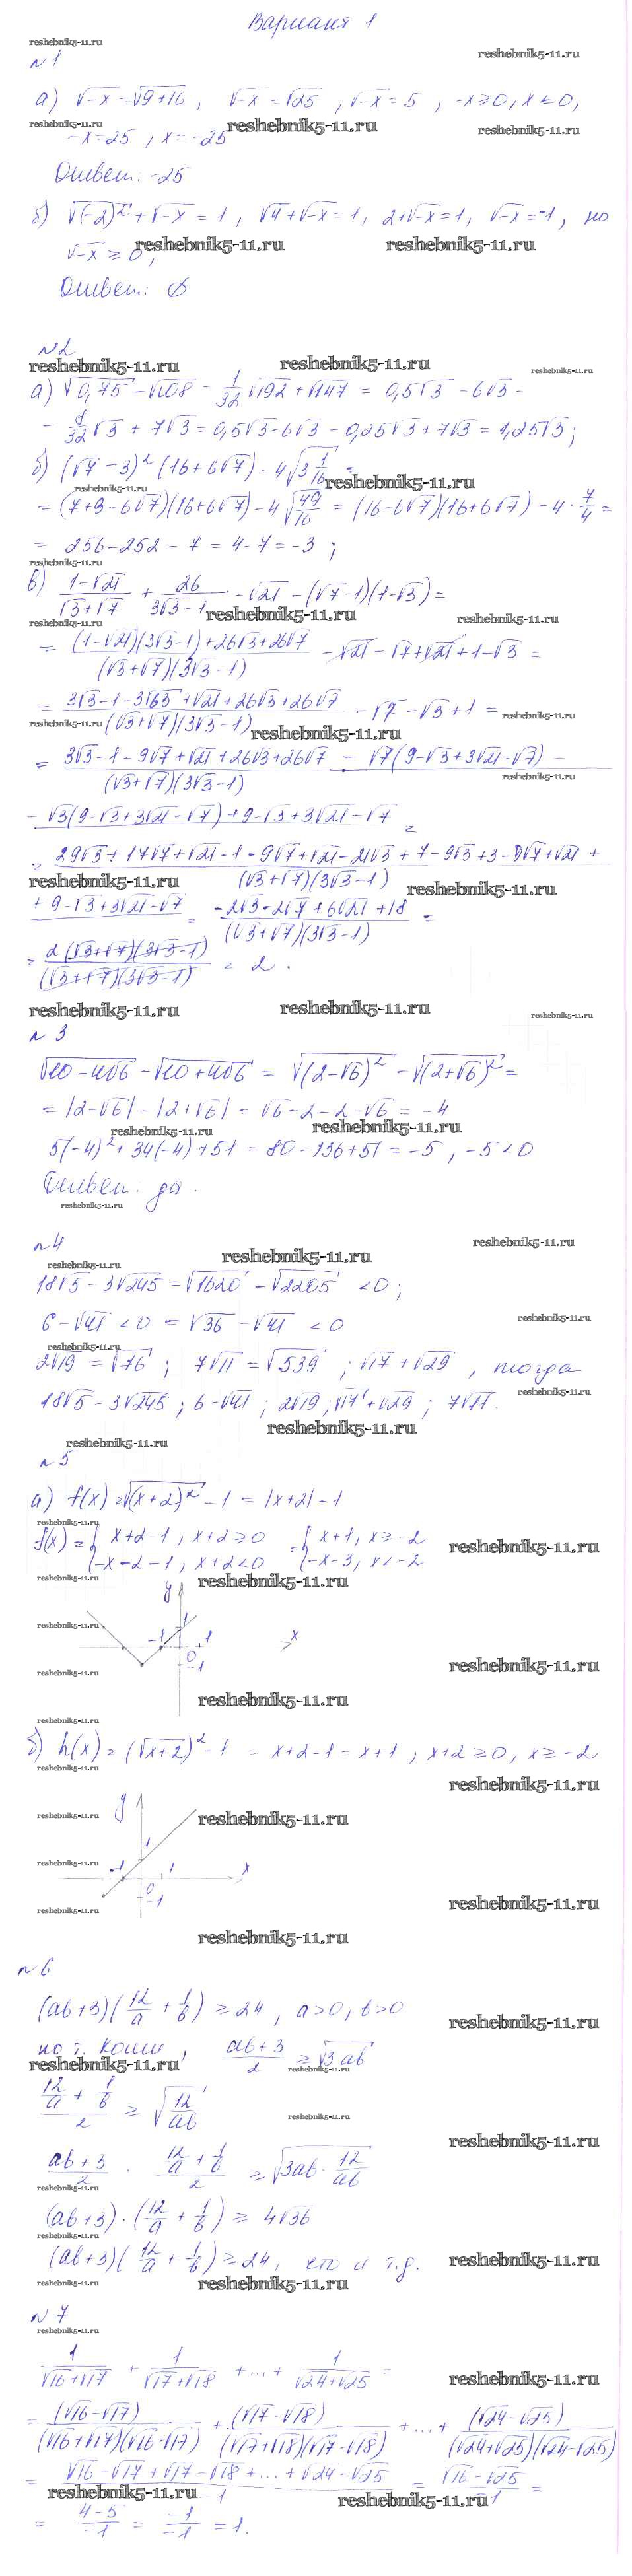 Вариант 1
№1
а) √-x = √9+16 , √-x = √25 , √-x = 5 , -x ≥ 0, x ≤ 0,
-x = 25 , x = -25
Ответ: -25
б) √(-2)² + √-x = 1 , √4 + √-x = 1, 2+√-x = 1, √-x = -1 , но
√-x ≥ 0 ,
Ответ: ∅
№2
а) √0,75 - √108 - 1/32 √192 + √147 = 0,5√3 - 6√3 -
- 8/32 √3 + 7√3 = 0,5√3 - 6√3 - 0,25√3 + 7√3 = 1,25√3 ;
б) (√7 - 3)² (16 + 6√7) - 4√3 1/16 =
= (7+9-6√7)(16+6√7) - 4√49/16 = (16-6√7)(16+6√7) - 4 · 7/4 =
= 256 - 252 - 7 = 4 - 7 = -3 ;
в) (1-√21)/(√3+√7) + 26/(3√3-1) - √21 - (√7-1)(1-√3) =
= ((1-√21)(3√3-1)+26√3+26√7)/((√3+√7)(3√3-1)) - √21 - √7 + √21 + 1 - √3 =
= (3√3-1-3√63+√21+26√3+26√7)/((√3+√7)(3√3-1)) - √7 - √3 + 1 =
= (3√3-1-9√7+√21+26√3+26√7 - √7(9-√3+3√21-√7) -)/((√3+√7)(3√3-1))
- √3(9-√3+3√21-√7)+9-√3+3√21-√7 =
= (29√3+17√7+√21-1-9√7+√21-21√3+7-9√3+3-9√7+√21 +)/((√3+√7)(3√3-1))
+ 9-√3+3√21-√7 = (-2√3-2√7+6√21+18)/((√3+√7)(3√3-1)) =
= 2(√3+√7)(3√3-1)/((√3+√7)(3√3-1)) = 2 .
№3
√10-4√6 - √10+4√6 = √(2-√6)² - √(2+√6)² =
= |2-√6| - |2+√6| = √6 - 2 - 2 - √6 = -4
5(-4)² + 34(-4) + 51 = 80 - 136 + 51 = -5 , -5 < 0
Ответ: да .
№4
18√5 - 3√245 = √1620 - √2205 < 0 ;
6 - √41 < 0 = √36 - √41 < 0
2√19 = √76 ; 7√11 = √539 ; √17 + √29 , тогда
18√5 - 3√245 ; 6 - √41 ; 2√19 ; √17 + √29 ; 7√11.
№5
а) f(x) = √(x+2)² - 1 = |x+2| - 1
f(x) = { x+2-1 , x+2 ≥ 0 = { x+1, x ≥ -2
-x-2-1 , x+2 < 0 -x-3, x < -2
y
1
-1 0 1 x
-1
б) h(x) = (√x+2)² - 1 = x+2-1 = x+1 , x+2 ≥ 0, x ≥ -2
y
1
-1 0 1 x
-1
№6
(ab+3)(12/a + 1/b) ≥ 24 , a>0, b>0
по т. Коши , (ab+3)/2 ≥ √3ab
(12/a + 1/b)/2 ≥ √12/ab
(ab+3)/2 · (12/a + 1/b)/2 ≥ √3ab · 12/ab
(ab+3) · (12/a + 1/b) ≥ 4√36
(ab+3)(12/a + 1/b) ≥ 24, что и т.д.
№7
1/(√16+√17) + 1/(√17+√18) + ... + 1/(√24+√25) =
= (√16-√17)/((√16+√17)(√16-√17)) + (√17-√18)/((√17+√18)(√17-√18)) + ... + (√24-√25)/((√24+√25)(√24-√25))
= (√16-√17+√17-√18+...+√24-√25)/-1 = (√16-√25)/-1 =
= (4-5)/-1 = -1/-1 = 1.